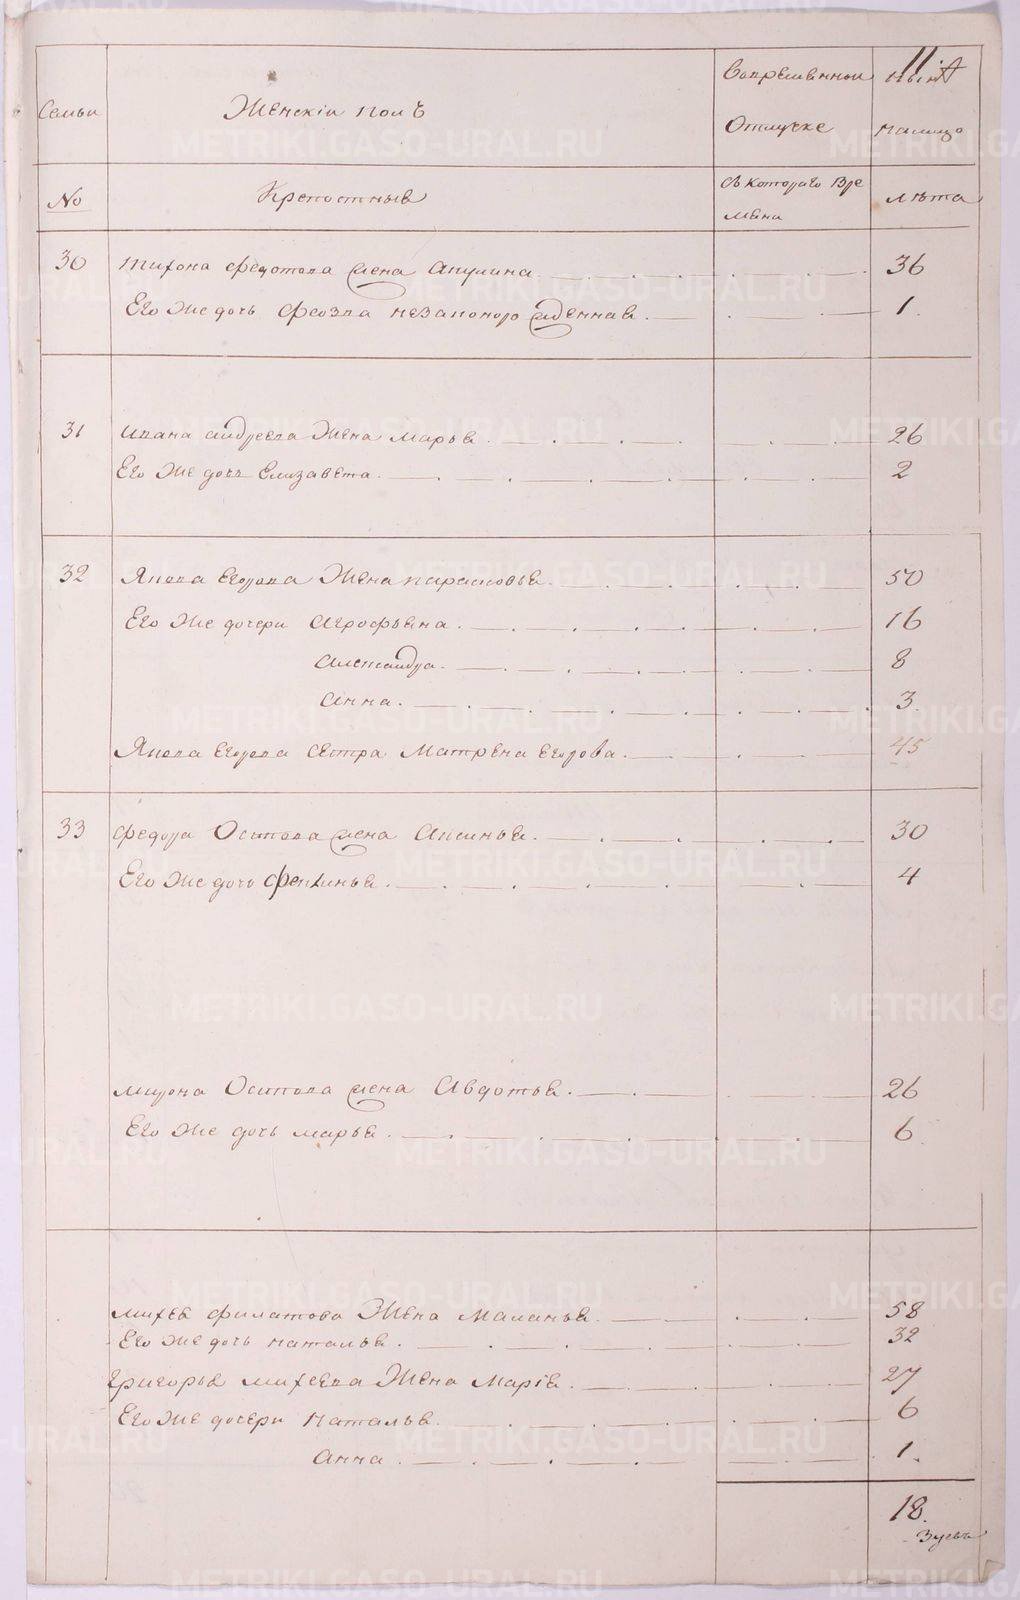 11
Семьи
Женскiи полъ
Вопрешеннои
Отлучке
ныне
налицо
No
Крепостныя
съ котораго вре
мени
лѣта
30 Тихона федотова жена Акулина 36
Его же дочь феозва незаконорожденная 1.
31 ивана андреева жена марья 26
Его же дочь Елизавета 2
32 Якова Егорова жена парасковья 50
Его же дочери Агрофѣна 16
александра 8
анна 3
Якова Егорова сестра Матрена Егорова 45
33 федора Осипова жена Аксинья 30
Его же дочь фентинья 4
мирона Осипова жена Авдотья 26
Его же дочь марья 6
михея филатова жена Маланья 58
Его же дочь наталья 32
григорья михеева жена Марiя 27
Его же дочери Наталья 6
анна 1.
18.
METRIKI.GASO-URAL.RU